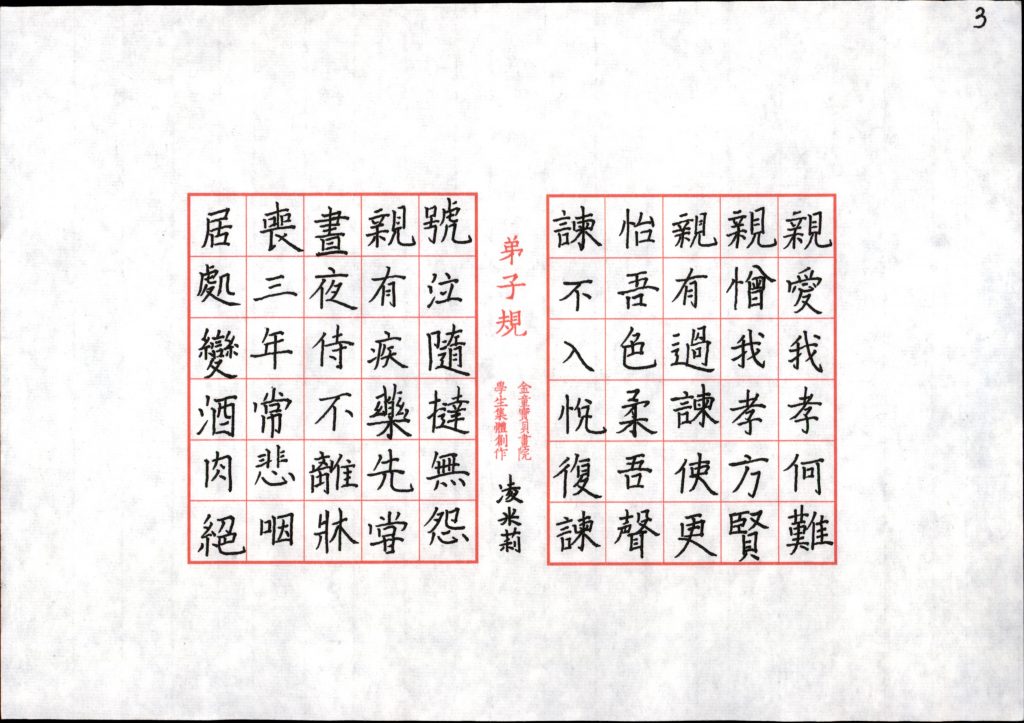 3
親愛我孝何難
親憎我孝方賢
親有過諫使更
怡吾色柔吾聲
諫不入悅復諫
弟子規
金童寶貝畫院
學生集體創作
凌米莉
號泣隨撻無怨
親有疾藥先嘗
晝夜侍不離牀
喪三年常悲咽
居處變酒肉絕